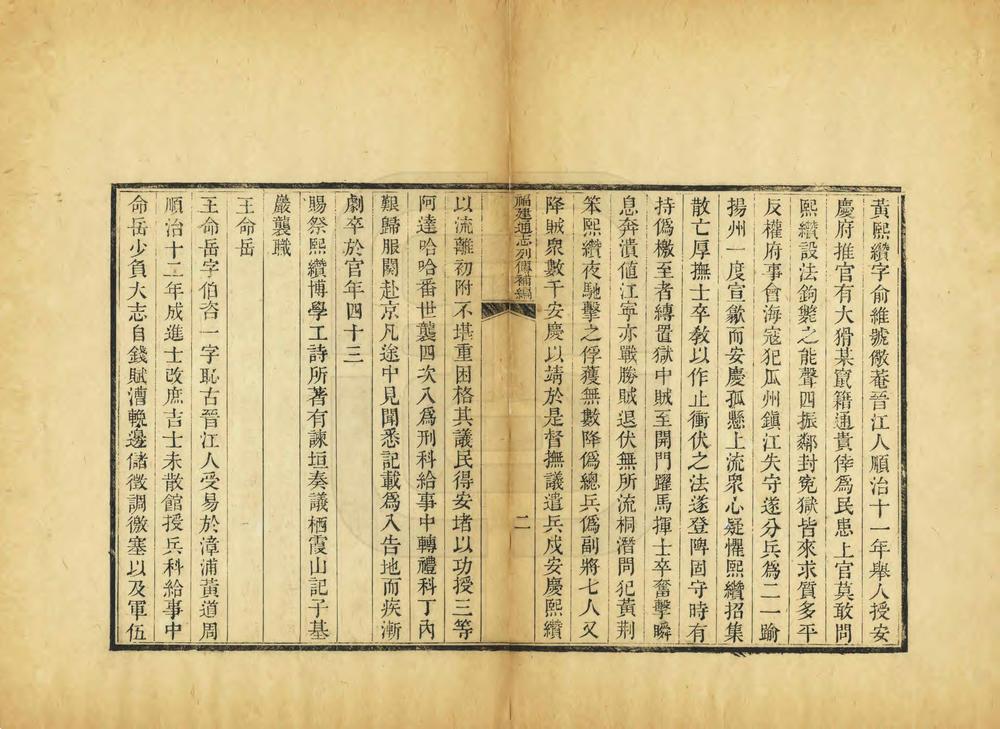 黃熙纘字俞維號儆菴晉江人順治十一年舉人授安
慶府推官有大猾某竄籍通貴倖為民患上官莫敢問
熙纘設法鉤斃之能聲四振鄰封冤獄皆來求質多平
反權府事會海寇犯瓜州鎮江失守遂分兵為二一踰
揚州一度宣歙而安慶孤懸上流衆心疑懼熙纘招集
散亡厚撫士卒教以作止衝伏之法遂登陴固守時有
持偽檄至者縛置獄中賊至開門躍馬揮士卒奮擊瞬
息奔潰值江寧亦戰勝賊退伏無所流桐潛間犯黃荆
笨熙纘夜馳擊之俘獲無數降偽總兵偽副將七人又
降賊衆數千安慶以靖於是督撫議遣兵戍安慶熙纘
福建通志列傳補編
二
以流離初附不堪重困格其議民得安堵以功授三等
阿達哈哈番世襲四次入為刑科給事中轉禮科丁內
艱歸服闋赴京凡途中見聞悉記載為入告地而疾漸
劇卒於官年四十三
賜祭熙纘博學工詩所著有諫垣奏議栖霞山記子基
嚴襲職
王命岳
王命岳字伯咨一字恥古晉江人受易於漳浦黃道周
順治十二年成進士改庶吉士未散館授兵科給事中
命岳少負大志自錢賦漕輓邊儲徵調徼塞以及軍伍